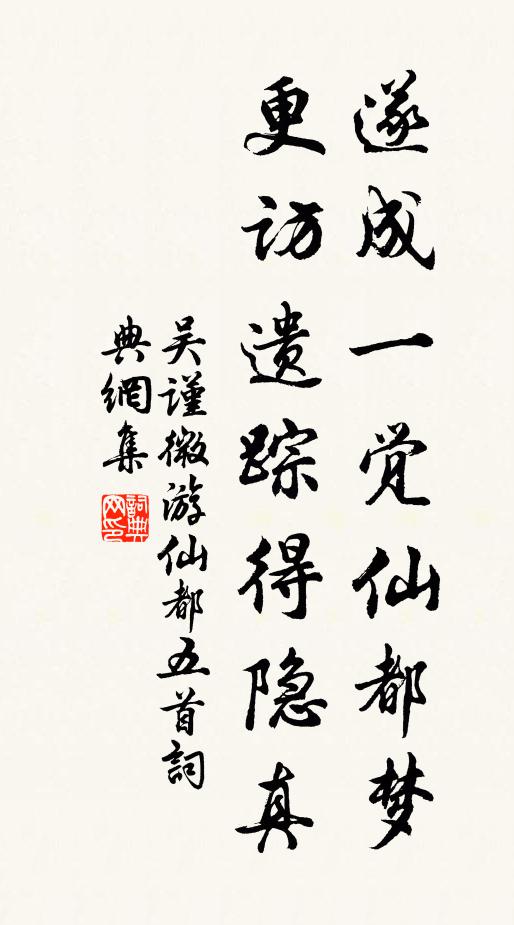 遂成一觉仙都梦
更访遗踪得隐真
吴谨微游仙都五首詞
典網集
詞典网印